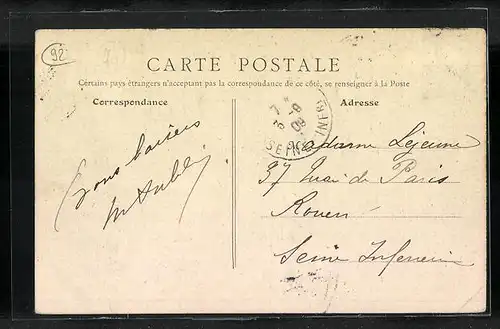 92
CARTE POSTALE
Certains pays étrangers n'acceptant pas la correspondance de ce côté, se renseigner à la Poste
Correspondance
Adresse
Bons baisers
Madame Lejeune
37 Quai de Paris
Rouen
Seine Inferieure
SEINE INFRE